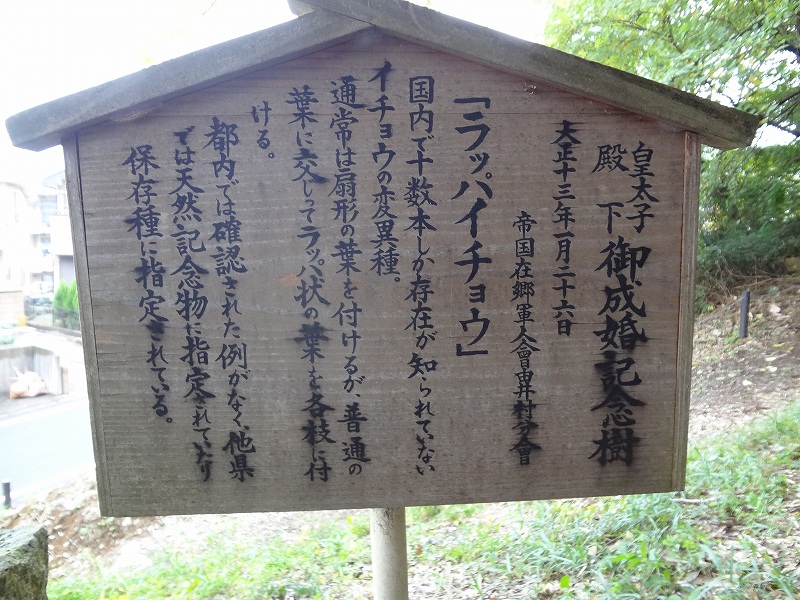 皇太子殿下御成婚記念樹
大正十三年一月二十六日
帝国在郷軍人會由井村分會
「ラッパイチョウ」
国内で十数本しか存在が知られていない
イチョウの変異種。
通常は扇形の葉を付けるが、普通の
葉に交じってラッパ状の葉を各枝に付
ける。
都内では確認された例がなく、他県
では天然記念物に指定されていたり
保存種に指定されている。